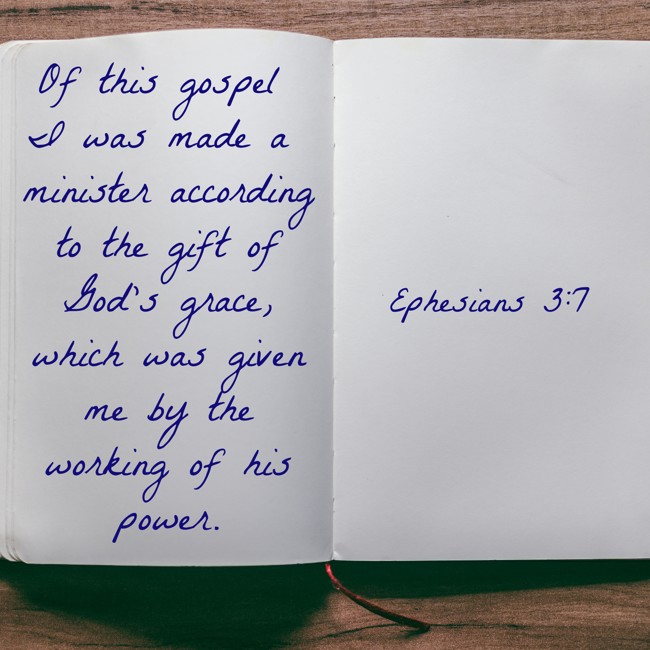 Of this gospel
I was made a
minister according
to the gift of
God's grace,
which was given
me by the
working of his
power.
Ephesians 3:7